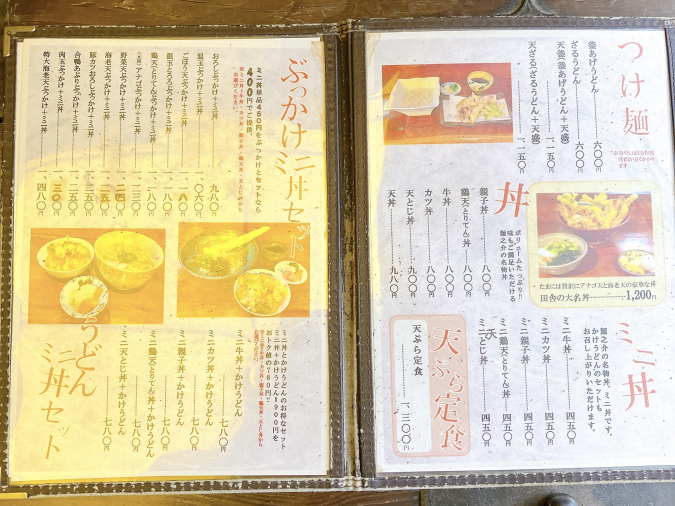 つけ麺
釜あげうどん 六〇〇円
ざるうどん 六〇〇円
天釜(釜あげうどん+天盛) 一、一五〇円
天ざる(ざるうどん+天盛) 一、一五〇円
丼
ボリュームたっぷり!!
味もご満足いただける
麺之介の名物丼
親子丼 八〇〇円
鶏天(とりてん)丼 八〇〇円
カツ丼 八〇〇円
牛丼 八〇〇円
天とじ丼 九〇〇円
天丼 九八〇円
たまには贅沢にアナゴ天と海老天の豪華な丼
田舎の大名丼 1,200円
ミニ丼
麺之介の名物丼、ミニ丼です。
かけうどんのセットも
お召し上がりいただけます。
ミニ牛丼 四五〇円
ミニカツ丼 四五〇円
ミニ親子丼 四五〇円
ミニ鶏天(とりてん)丼 四五〇円
ミニ天とじ丼 四五〇円
天ぷら定食
天ぷら定食 一、三〇〇円
ぶっかけミニ丼セット
ミニ丼単品450円をぶっかけとセットなら
400円でご提供。
おろしぶっかけ+ミニ丼 九八〇円
温玉ぶっかけ+ミニ丼 一、〇六〇円
ごぼう天ぶっかけ+ミニ丼 一、一八〇円
温玉とろろぶっかけ+ミニ丼 一、一八〇円
鶏天(とりてん)ぶっかけ+ミニ丼 一、一八〇円
(天然)アナゴぶっかけ+ミニ丼 一、二三〇円
野菜天ぶっかけ+ミニ丼
海老天ぶっかけ+ミニ丼 一、二五〇円
豚カツおろしぶっかけ+ミニ丼 一、二五〇円
合鴨あぶりぶっかけ+ミニ丼 一、二五〇円
肉玉ぶっかけ+ミニ丼 一、三〇〇円
特大海老天ぶっかけ+ミニ丼 一、四八〇円
うどんミニ丼セット
ミニ丼とかけうどんのお得なセット
ミニ丼+かけうどん900円を
おトク値の780円!!
ミニ牛丼+かけうどん 七八〇円
ミニカツ丼+かけうどん 七八〇円
ミニ親子丼+かけうどん 七八〇円
ミニ鶏天(とりてん)丼+かけうどん 七八〇円
ミニ天とじ丼+かけうどん 七八〇円